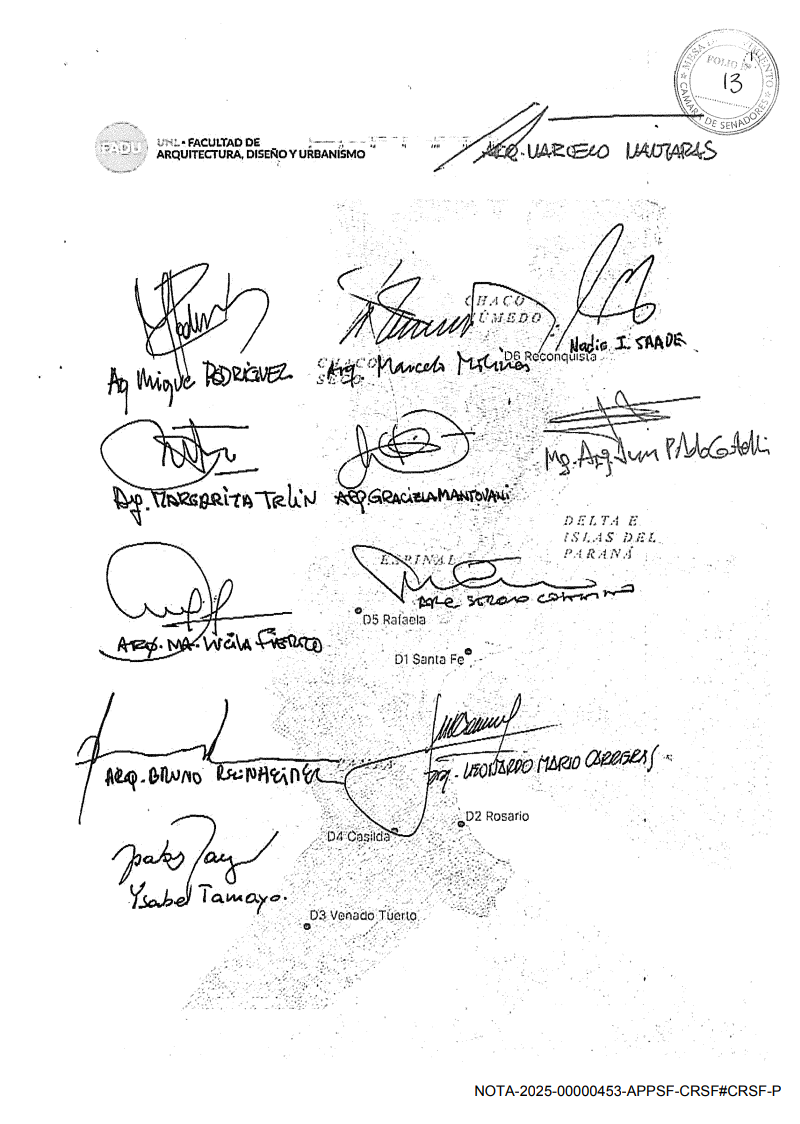 MESA DE MOVIMIENTO
FOLIO Nº
13
CAMARA DE SENADORES
FADU
UNL • FACULTAD DE
ARQUITECTURA, DISEÑO Y URBANISMO
ARQ. MARCELO
CHACO
HÚMEDO
Nadia I. SAADE
D6 Reconquista
CHACO
SECO
Arq Miguel RODRIGUEZ
Arq. Marcelo Molinas
Mg. Arq. Juan Pablo
Arq. MARGARITA TRLIN
ARQ. GRACIELA MANTOVANI
DELTA E
ISLAS DEL
PARANÁ
ESPINAL
ARQ. SERGIO
D5 Rafaela
ARQ. MA. LUCILA FIERRO
D1 Santa Fe
ARQ. BRUNO REINHEIMER
Arq. LEONARDO MARIO CARRERAS
D2 Rosario
D4 Casilda
Ysabel Tamayo.
D3 Venado Tuerto
NOTA-2025-00000453-APPSF-CRSF#CRSF-P